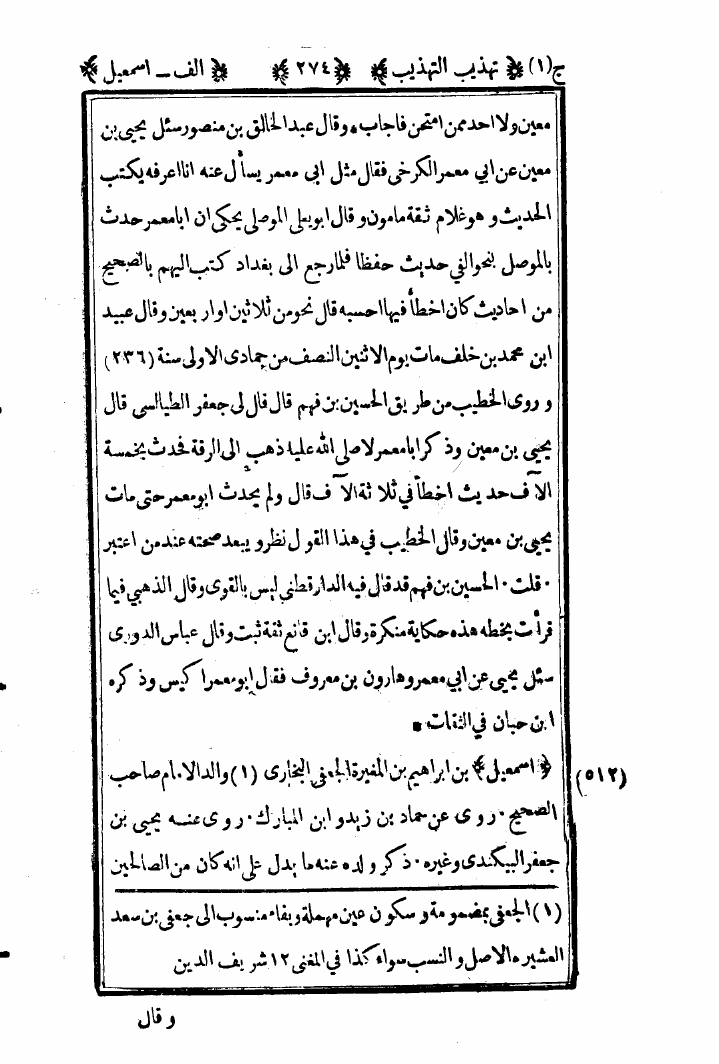 ج(١) ﴿ تهذيب التهذيب ﴾ ﴿ ٢٧٤ ﴾ ﴿ الف ــ اسمعيل ﴾
معين ولا احد ممن امتحن فاجاب • وقال عبد الخالق بن منصور سئل يحيى بن
معين عن ابي معمر الكرخى فقال مثل ابى معمر يسأل عنه انا اعرفه يكتب
الحديث وهو غلام ثقة مامون وقال ابو يعلى الموصلى يحكى ان ابا معمر حدث
بالموصل بنحو الفي حديث حفظا فلما رجع الى بغداد كتب اليهم بالصحيح
من احاديث كان اخطأ فيها احسبه قال نحو من ثلاثين او اربعين وقال عبيد
ابن محمد بن خلف مات يوم الاثنين النصف من جمادى الاولى سنة (٢٣٦)
وروى الخطيب من طريق الحسين بن فهم قال قال لى جعفر الطيالسى قال
يحيى بن معين وذكر ابا معمر لا صلى الله عليه ذهب الى الرقة فحدث بخمسة
الآف حديث اخطأ في ثلاثة الآف قال ولم يحدث ابو معمر حتى مات
يحيى بن معين وقال الخطيب في هذا القول نظر ويبعد صحته عند من اعتبر
• قلت • الحسين بن فهم قد قال فيه الدار قطنى ليس بالقوى وقال الذهبي فيما
قرأت بخطه هذه حكاية منكرة وقال ابن قانع ثقة ثبت وقال عباس الدورى
سئل يحيى عن ابي معمر وهارون بن معروف فقال ابو معمر اكيس وذكره
ابن حبان في الثقات •
(٥١٢) ﴿ اسمعيل ﴾ بن ابراهيم بن المغيرة الجعفى البخارى (١) والد الامام صاحب
الصحيح • روى عن حماد بن زيد وابن المبارك • روى عنه يحيى بن
جعفر البيكندى وغيره • ذكر ولده عنه ما يدل على انه كان من الصالحين
(١) الجعفى بمضمومة وسكون عين مهملة وبفاء منسوب الى جعفى بن سعد
العشيره الاصل والنسب سواء كذا في المغنى ١٢ شريف الدين
وقال